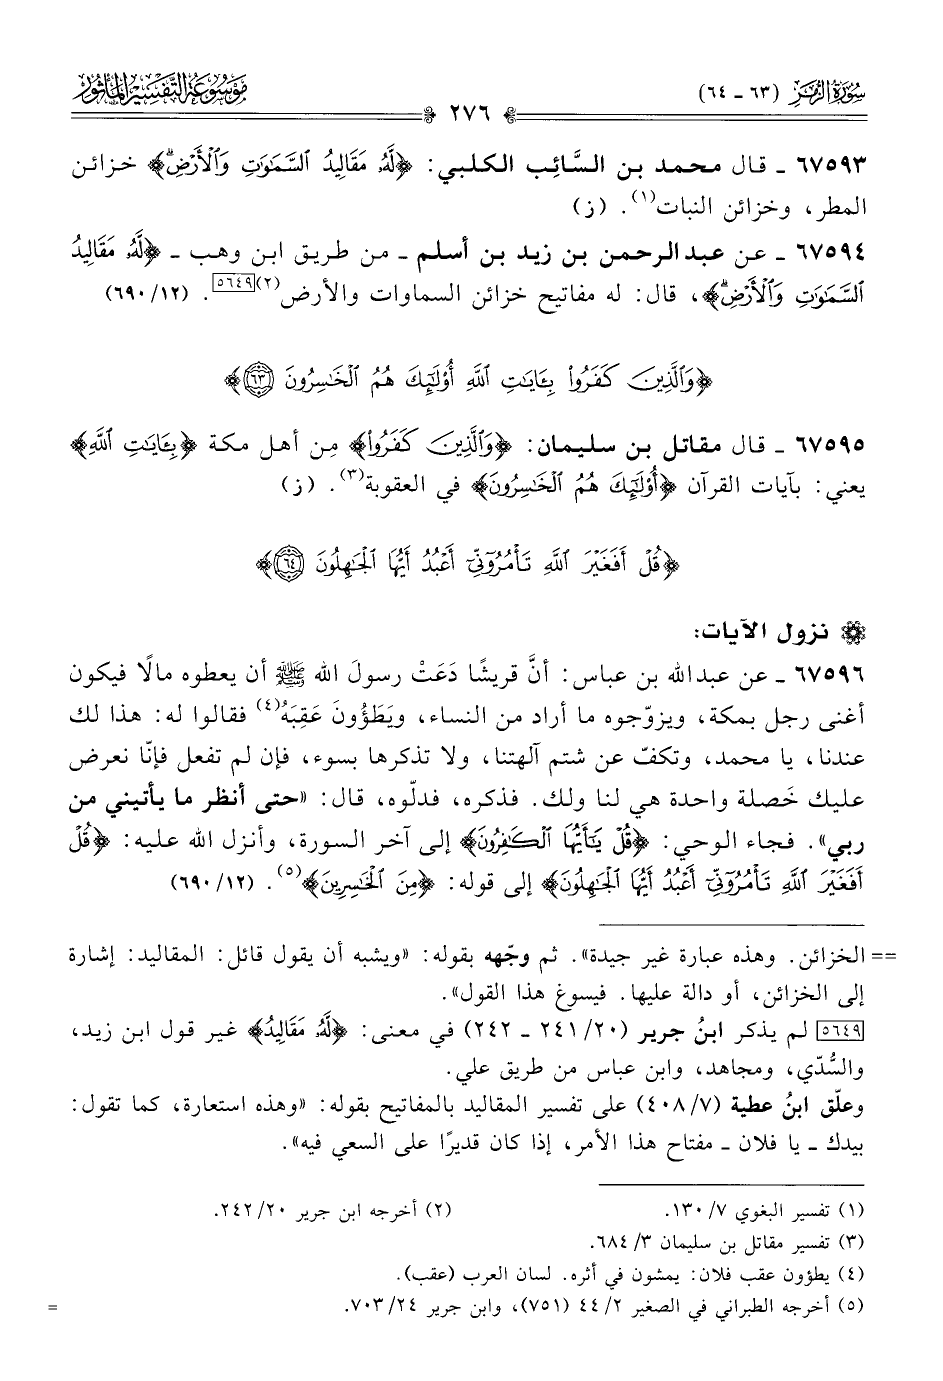 سُورَةُ الزُّمَر (٦٣ - ٦٤)
مَوْسُوعَة التَّفْسِير المَأثُور
٢٧٦
٦٧٥٩٣ - قال محمد بن السَّائب الكلبي: ﴿لَّهُۥ مَقَالِيدُ ٱلسَّمَٰوَٰتِ وَٱلْأَرْضِۗ﴾ خزائن
المطر، وخزائن النبات(١). (ز)
٦٧٥٩٤ - عن عبدالرحمن بن زيد بن أسلم - من طريق ابن وهب - ﴿لَّهُۥ مَقَالِيدُ
ٱلسَّمَٰوَٰتِ وَٱلْأَرْضِۗ﴾، قال: له مفاتيح خزائن السماوات والأرض(٢)[٥٦٤٩]. (١٢/ ٦٩٠)
﴿وَٱلَّذِينَ كَفَرُوا۟ بِـَٔايَٰتِ ٱللَّهِ أُو۟لَٰٓئِكَ هُمُ ٱلْخَٰسِرُونَ ٦٣﴾
٦٧٥٩٥ - قال مقاتل بن سليمان: ﴿وَٱلَّذِينَ كَفَرُوا۟﴾ مِن أهل مكة ﴿بِـَٔايَٰتِ ٱللَّهِ﴾
يعني: بآيات القرآن ﴿أُو۟لَٰٓئِكَ هُمُ ٱلْخَٰسِرُونَ﴾ في العقوبة(٣). (ز)
﴿قُلْ أَفَغَيْرَ ٱللَّهِ تَأْمُرُوٓنِّىٓ أَعْبُدُ أَيُّهَا ٱلْجَٰهِلُونَ ٦٤﴾
نزول الآيات:
٦٧٥٩٦ - عن عبدالله بن عباس: أنَّ قريشًا دَعَتْ رسولَ الله ﷺ أن يعطوه مالًا فيكون
أغنى رجل بمكة، ويزوّجوه ما أراد من النساء، ويَطَؤُونَ عَقِبَهُ(٤) فقالوا له: هذا لك
عندنا، يا محمد، وتكفّ عن شتم آلهتنا، ولا تذكرها بسوء، فإن لم تفعل فإنّا نعرض
عليك خَصلة واحدة هي لنا ولك. فذكره، فدلّوه، قال: «حتى أنظر ما يأتيني من
ربي». فجاء الوحي: ﴿قُلْ يَٰٓأَيُّهَا ٱلْكَٰفِرُونَ﴾ إلى آخر السورة، وأنزل الله عليه: ﴿قُلْ
أَفَغَيْرَ ٱللَّهِ تَأْمُرُوٓنِّىٓ أَعْبُدُ أَيُّهَا ٱلْجَٰهِلُونَ﴾ إلى قوله: ﴿مِنَ ٱلْخَٰسِرِينَ﴾(٥). (١٢/ ٦٩٠)
== الخزائن. وهذه عبارة غير جيدة». ثم وجّهه بقوله: «ويشبه أن يقول قائل: المقاليد: إشارة
إلى الخزائن، أو دالة عليها. فيسوغ هذا القول».
[٥٦٤٩] لم يذكر ابنُ جرير (٢٠/ ٢٤١ - ٢٤٢) في معنى: ﴿لَّهُۥ مَقَالِيدُ﴾ غير قول ابن زيد،
والسُّدّي، ومجاهد، وابن عباس من طريق علي.
وعلّق ابنُ عطية (٧/ ٤٠٨) على تفسير المقاليد بالمفاتيح بقوله: «وهذه استعارة، كما تقول:
بيدك - يا فلان - مفتاح هذا الأمر، إذا كان قديرًا على السعي فيه».
(١) تفسير البغوي ٧/ ١٣٠. (٢) أخرجه ابن جرير ٢٠/ ٢٤٢.
(٣) تفسير مقاتل بن سليمان ٣/ ٦٨٤.
(٤) يطؤون عقب فلان: يمشون في أثره. لسان العرب (عقب).
(٥) أخرجه الطبراني في الصغير ٢/ ٤٤ (٧٥١)، وابن جرير ٢٤/ ٧٠٣. =